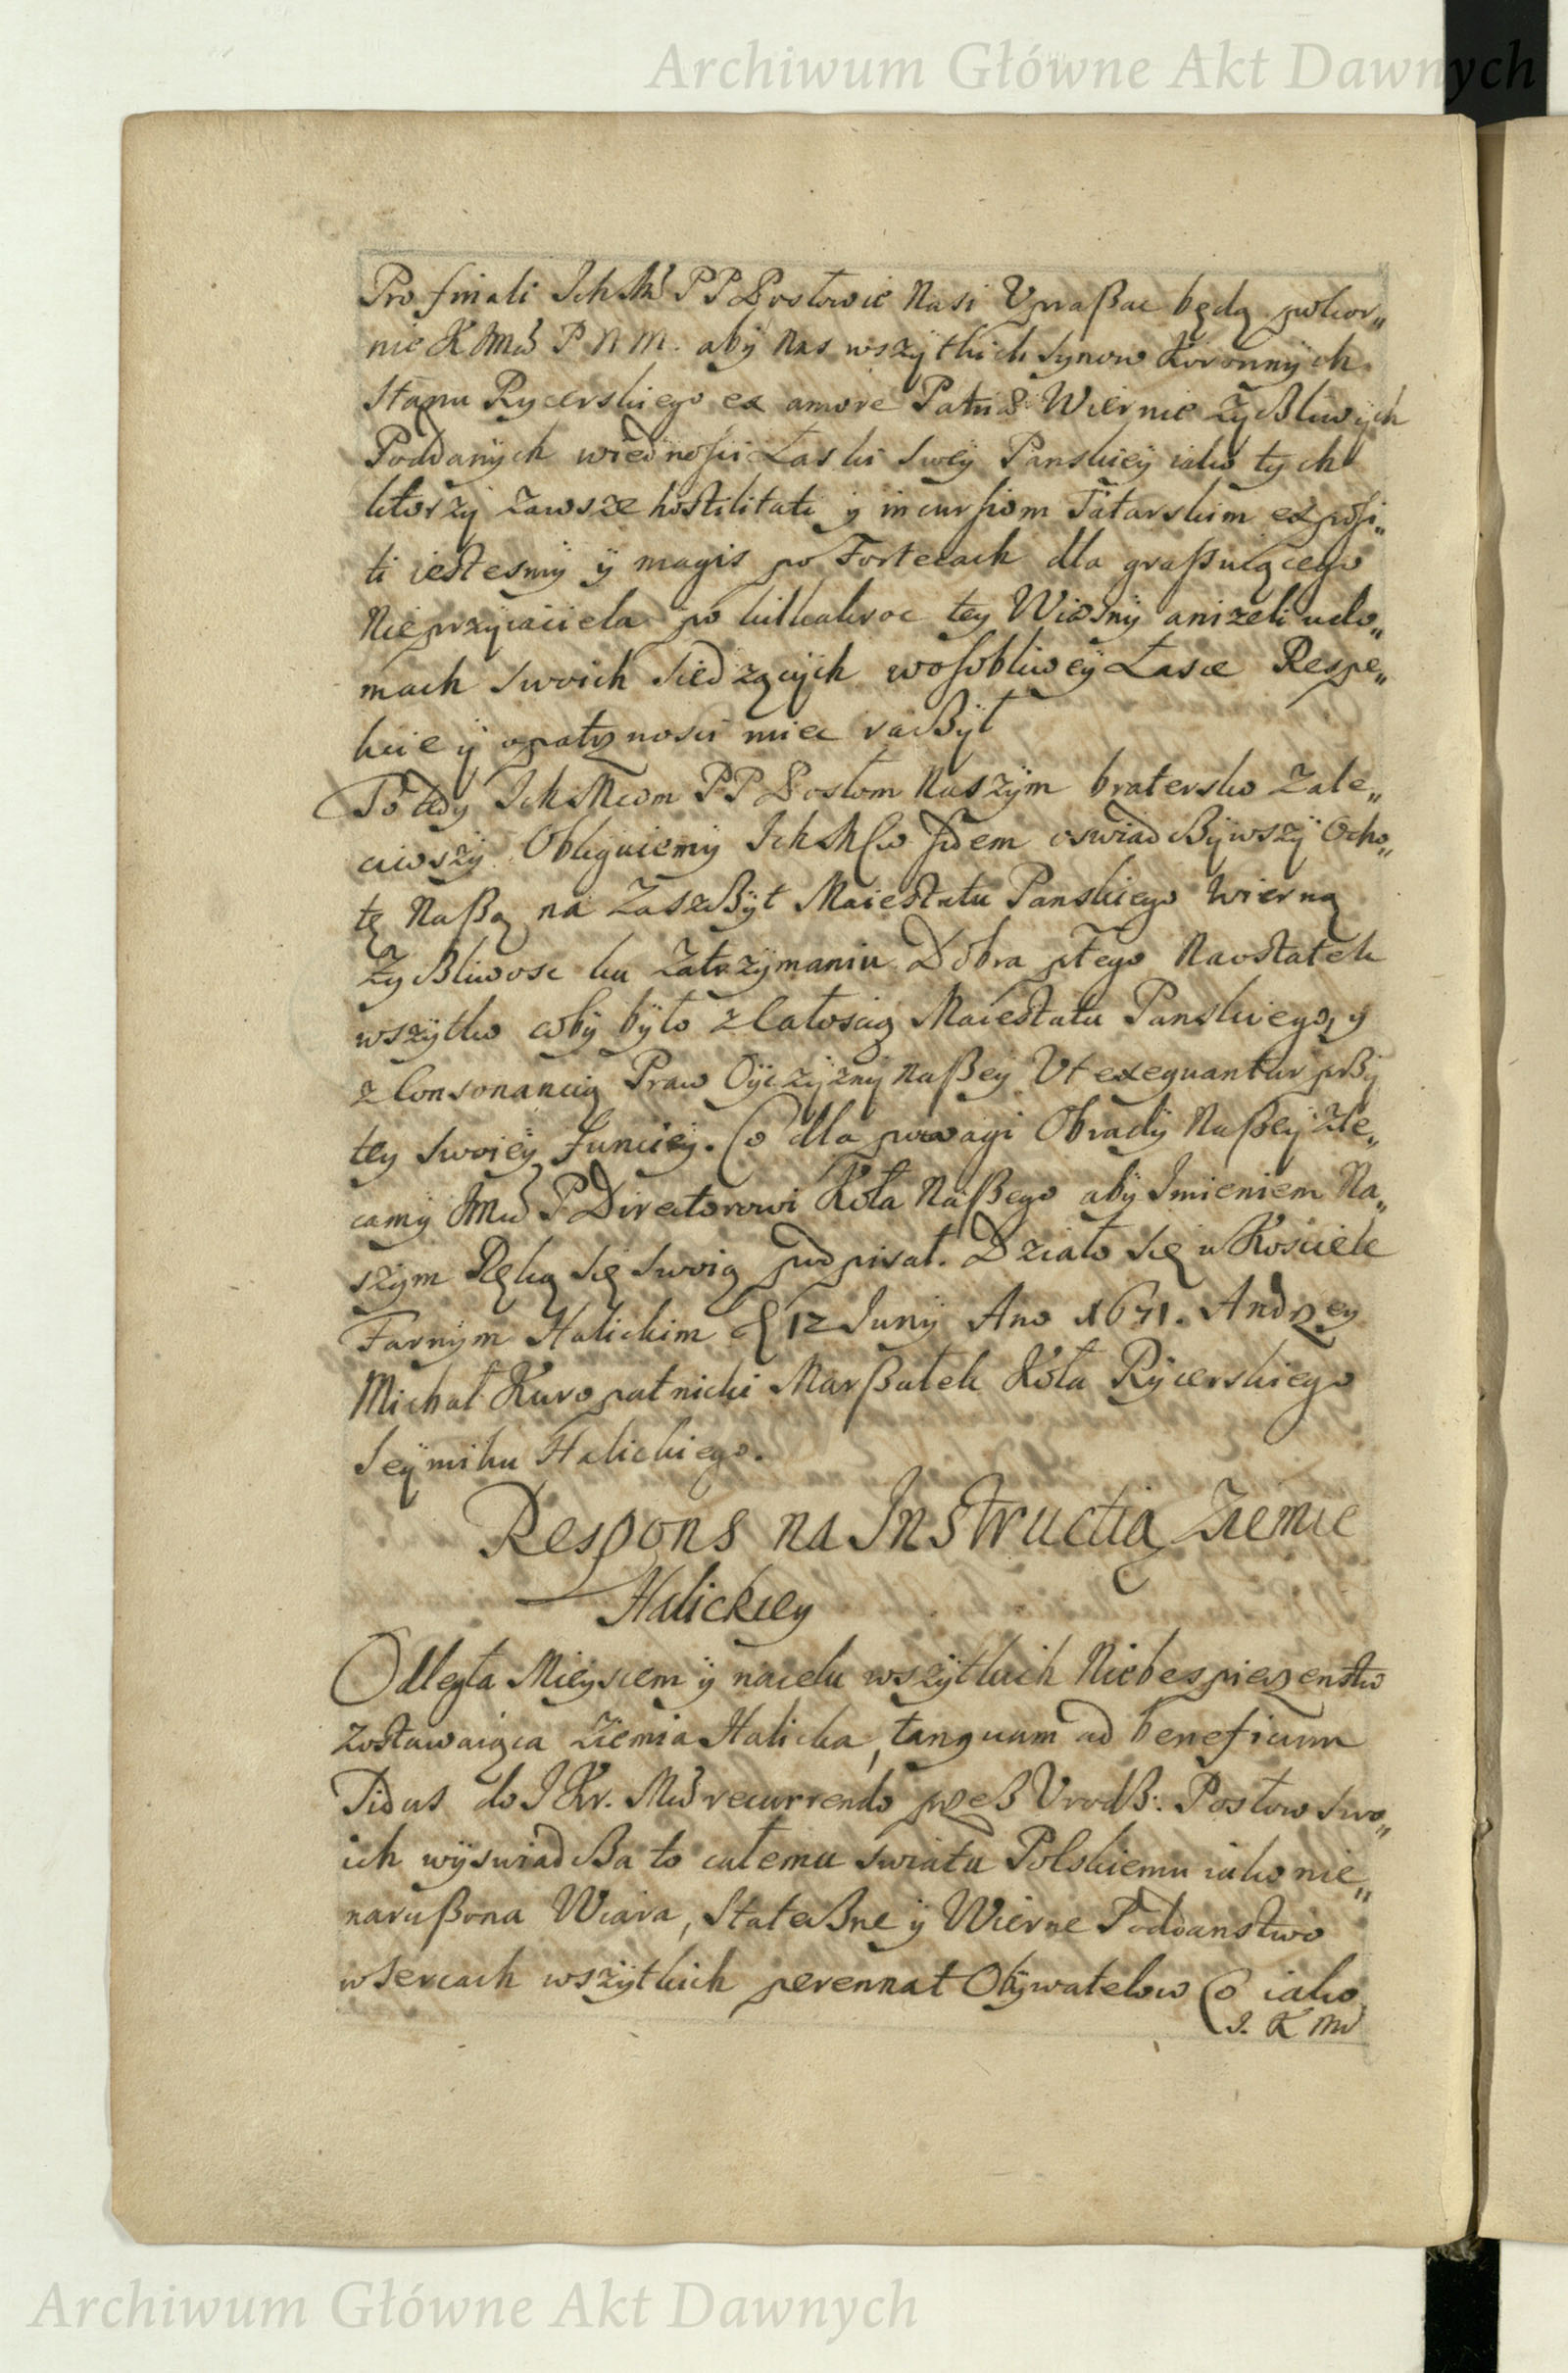 Archiwum Główne Akt Dawnych
Pro finali Ich Mć PP Posłowie Nasi Upraßac będą pokor„
nie K JMci P N M. aby Nas wszytkich Synow Koronnych
Stanu Rycerskiego ex amore Patriæ Wiernie Zyßliwych
Poddanych wiednosci Łaski Swey Panskiey iako tych
ktorzy zawsze hostilitati y incursiom Tatarskim exposi„
ti iestesmy y magis po Fortecach dla graßuiącego
Nieprzyiaciela po kilkakroc tey Wiosny anizeli wdo„
mach swoich siedzących wosobliwey Łasce Respe„
kcie y opatrznosci miec raczył
To tedy Ich Mciom PP Posłom Naszym bratersko Zale„
ciwszy Obliguiemy Ich Mciow fidem oswiadßywszy Ocho„
tę Naßą na Zaszßyt Maiestatu Panskiego wierną
Zyßliwosc ku Zatrzymaniu Dobra płego Naostatek
wszytko coby było z Całoscią Maiestatu Panskiego, y
z Consonancią Praw Oyczyzny Naßey Ut exequantur pßy
tey swoiey funciey. Co dla powagi Obrady Naßey Zle„
camy JMci P Direktorowi Koła Naßego aby Imieniem Na„
szym Ręką się swoią podpisał. Działo się w Kosciele
Farnym Halickim d 12 Juny Ano 1671. Andrzey
Michał Kuropatnicki Marßałek Koła Rycerskiego
Seymiku Halickiego.
Respons na Instructią Ziemie
Halickiey
Odległa Mieyscem y nacelu wszytkich Niebespieczenstw
zostawaiąca Ziemia Halicka, tanquam ad beneficum
Sidus do J Kr. Mci recurrendo przeß Urodß: Posłow swo„
ich wyswiadßa to całemu swiatu Polskiemu iako nie„
narußona Wiara, Stateßne y Wierne Poddanstwo
w Sercach wszytkich perennat Obywatelow Co iako
J. K Mć
Archiwum Główne Akt Dawnych